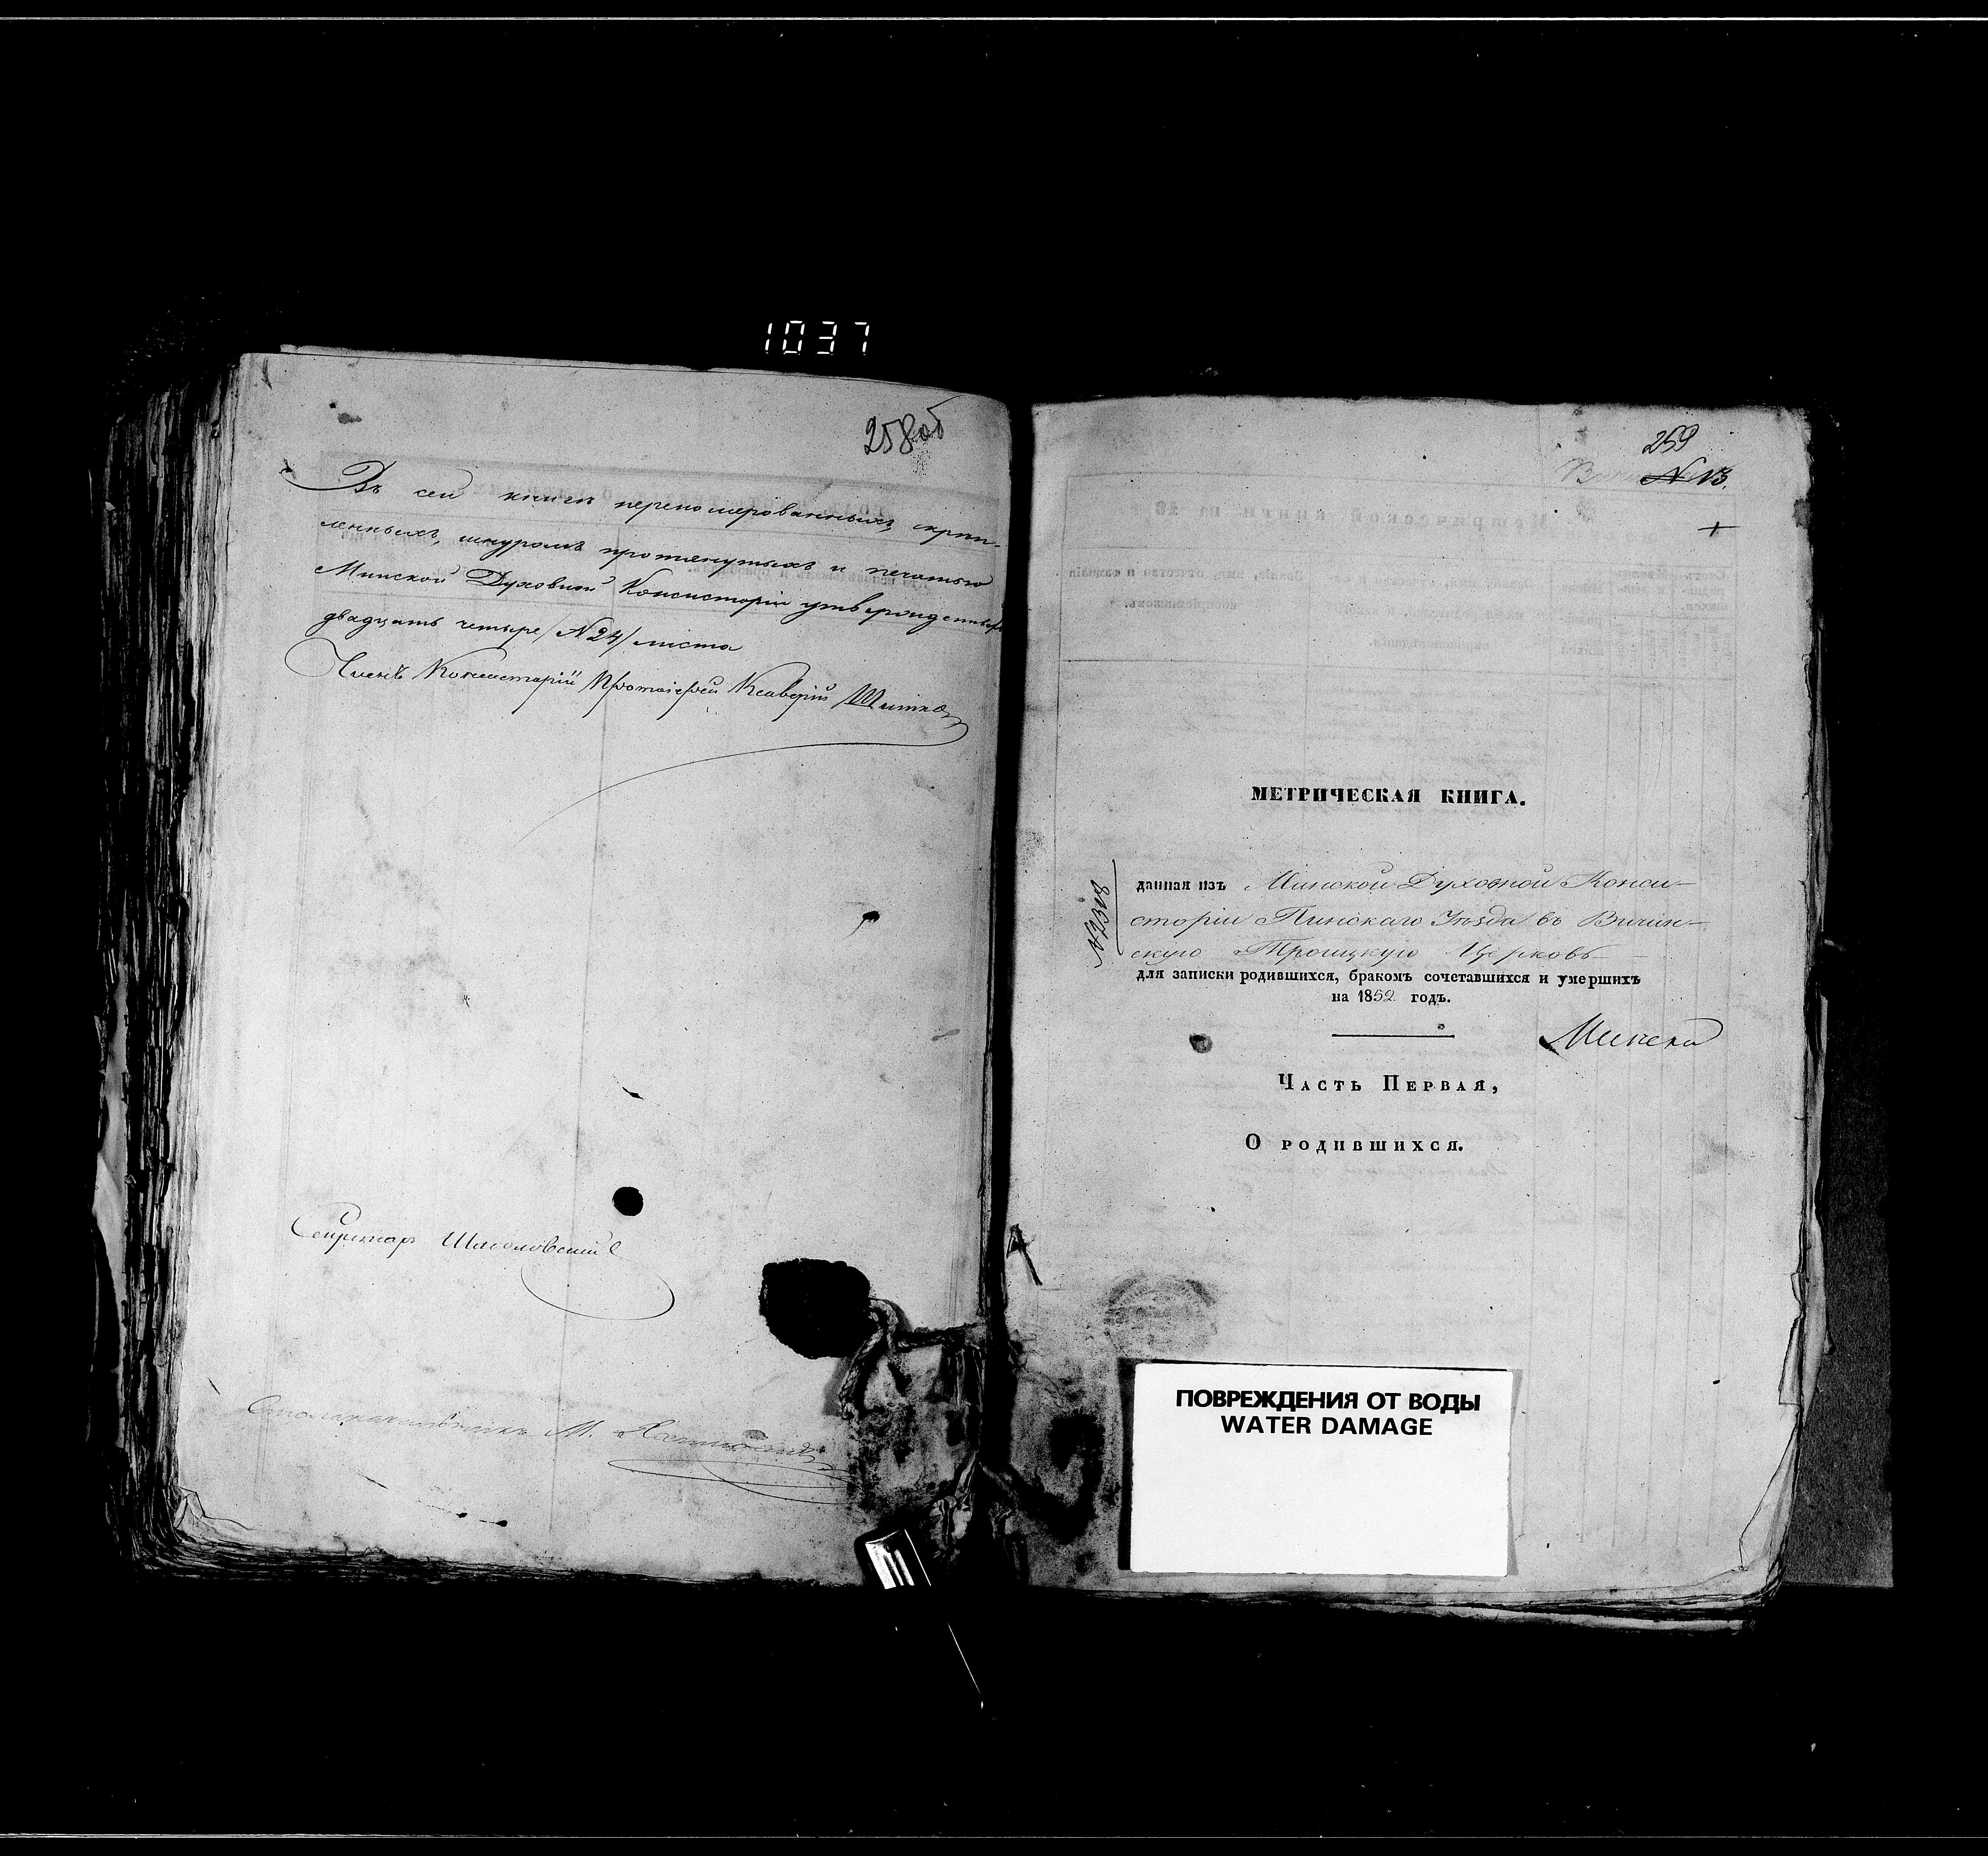 1037
258 об
Въ сей книгѣ перепомерованныхъ, скрѣп-
ленныхъ, шнуромъ протянутыхъ и печатью
Минской Духовной Консисторіи утвержденныхъ
двадцать четыре /N 24/ листа
Членъ Консисторіи Протоіерей Ксаверій
Секретарь
М.
259
N 13.
МЕТРИЧЕСКАЯ КНИГА.
данная изъ Минской Духовной Конси-
сторіи Пинскаго Уѣзда въ Вичин-
скую Троицкую Церковь
для записки родившихся, бракомъ сочетавшихся и умершихъ
на 1852 годъ.
ЧАСТЬ ПЕРВАЯ,
О РОДИВШИХСЯ.
ПОВРЕЖДЕНИЯ ОТ ВОДЫ
WATER DAMAGE